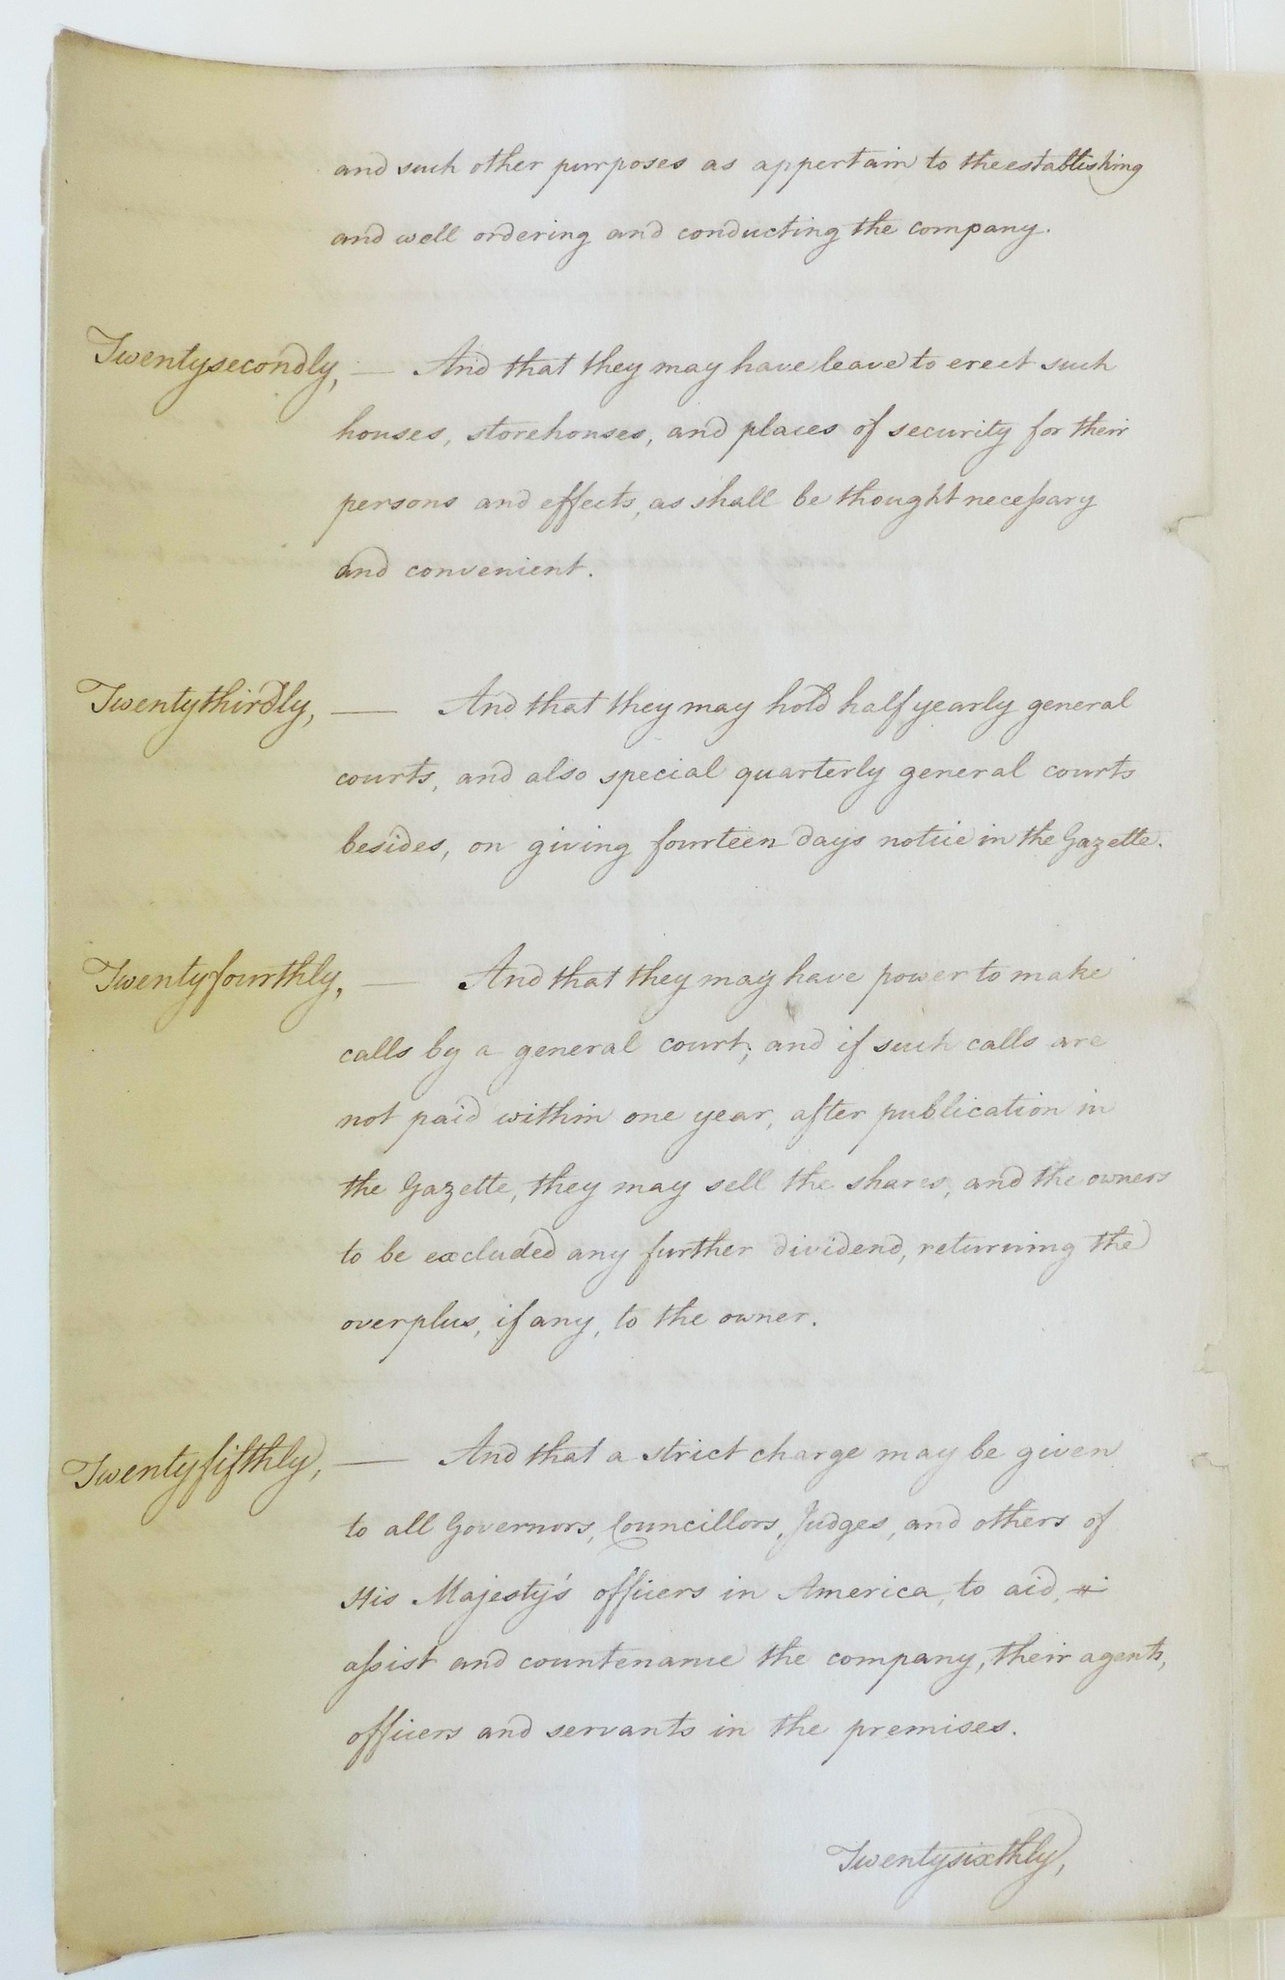 and such other purposes as appertain to the establishing
and well ordering and conducting the company.
Twentysecondly, — And that they may have leave to erect such
houses, storehouses, and places of security for their
persons and effects, as shall be thought neceſsary
and convenient.
Twentythirdly, — And that they may hold half yearly general
courts, and also special quarterly general courts
besides, on giving fourteen days notice in the Gazette.
Twentyfourthly, — And that they may have power to make
calls by a general court; and if such calls are
not paid within one year, after publication in
the Gazette, they may sell the shares, and the owners
to be excluded any further dividend, returning the
overplus, if any, to the owner.
Twentyfifthly, — And that a strict charge may be given
to all Governors, Councillors, Judges, and others of
His Majesty's officers in America, to aid,
aſsist and countenance the company, their agents,
officers and servants in the premises.
Twentysixthly,